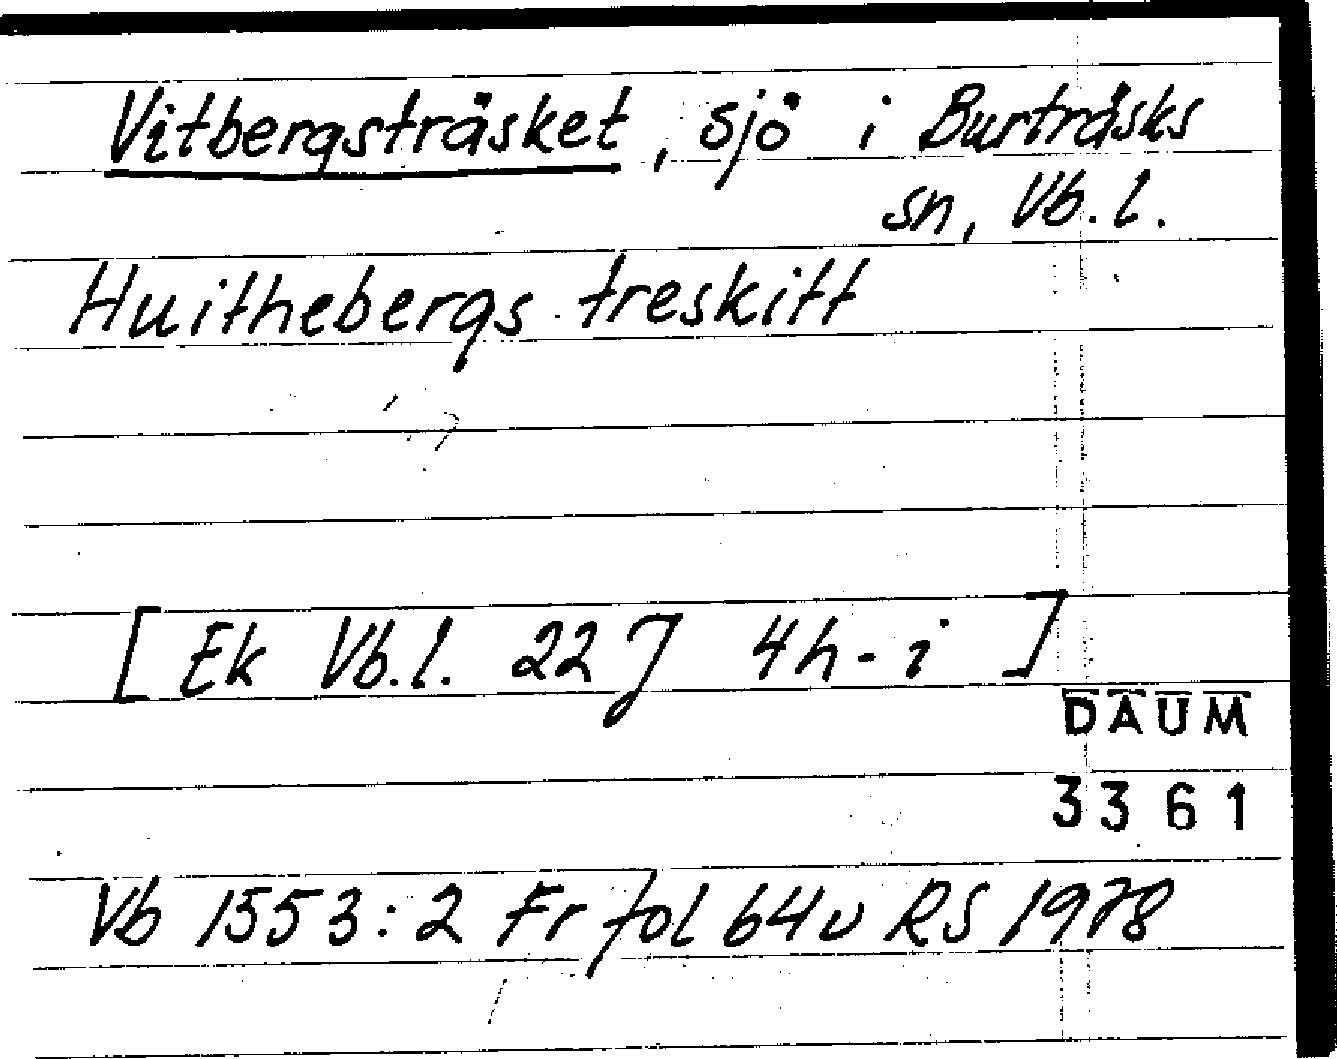 Vitbergsträsket, sjö i Burträsks
sn, Vb.l.
Huithebergs treskitt
[Ek Vb.l. 22 J 4h-i]
DAUM
3361
Vb 1553:2 Fr fol 64v RS 1978